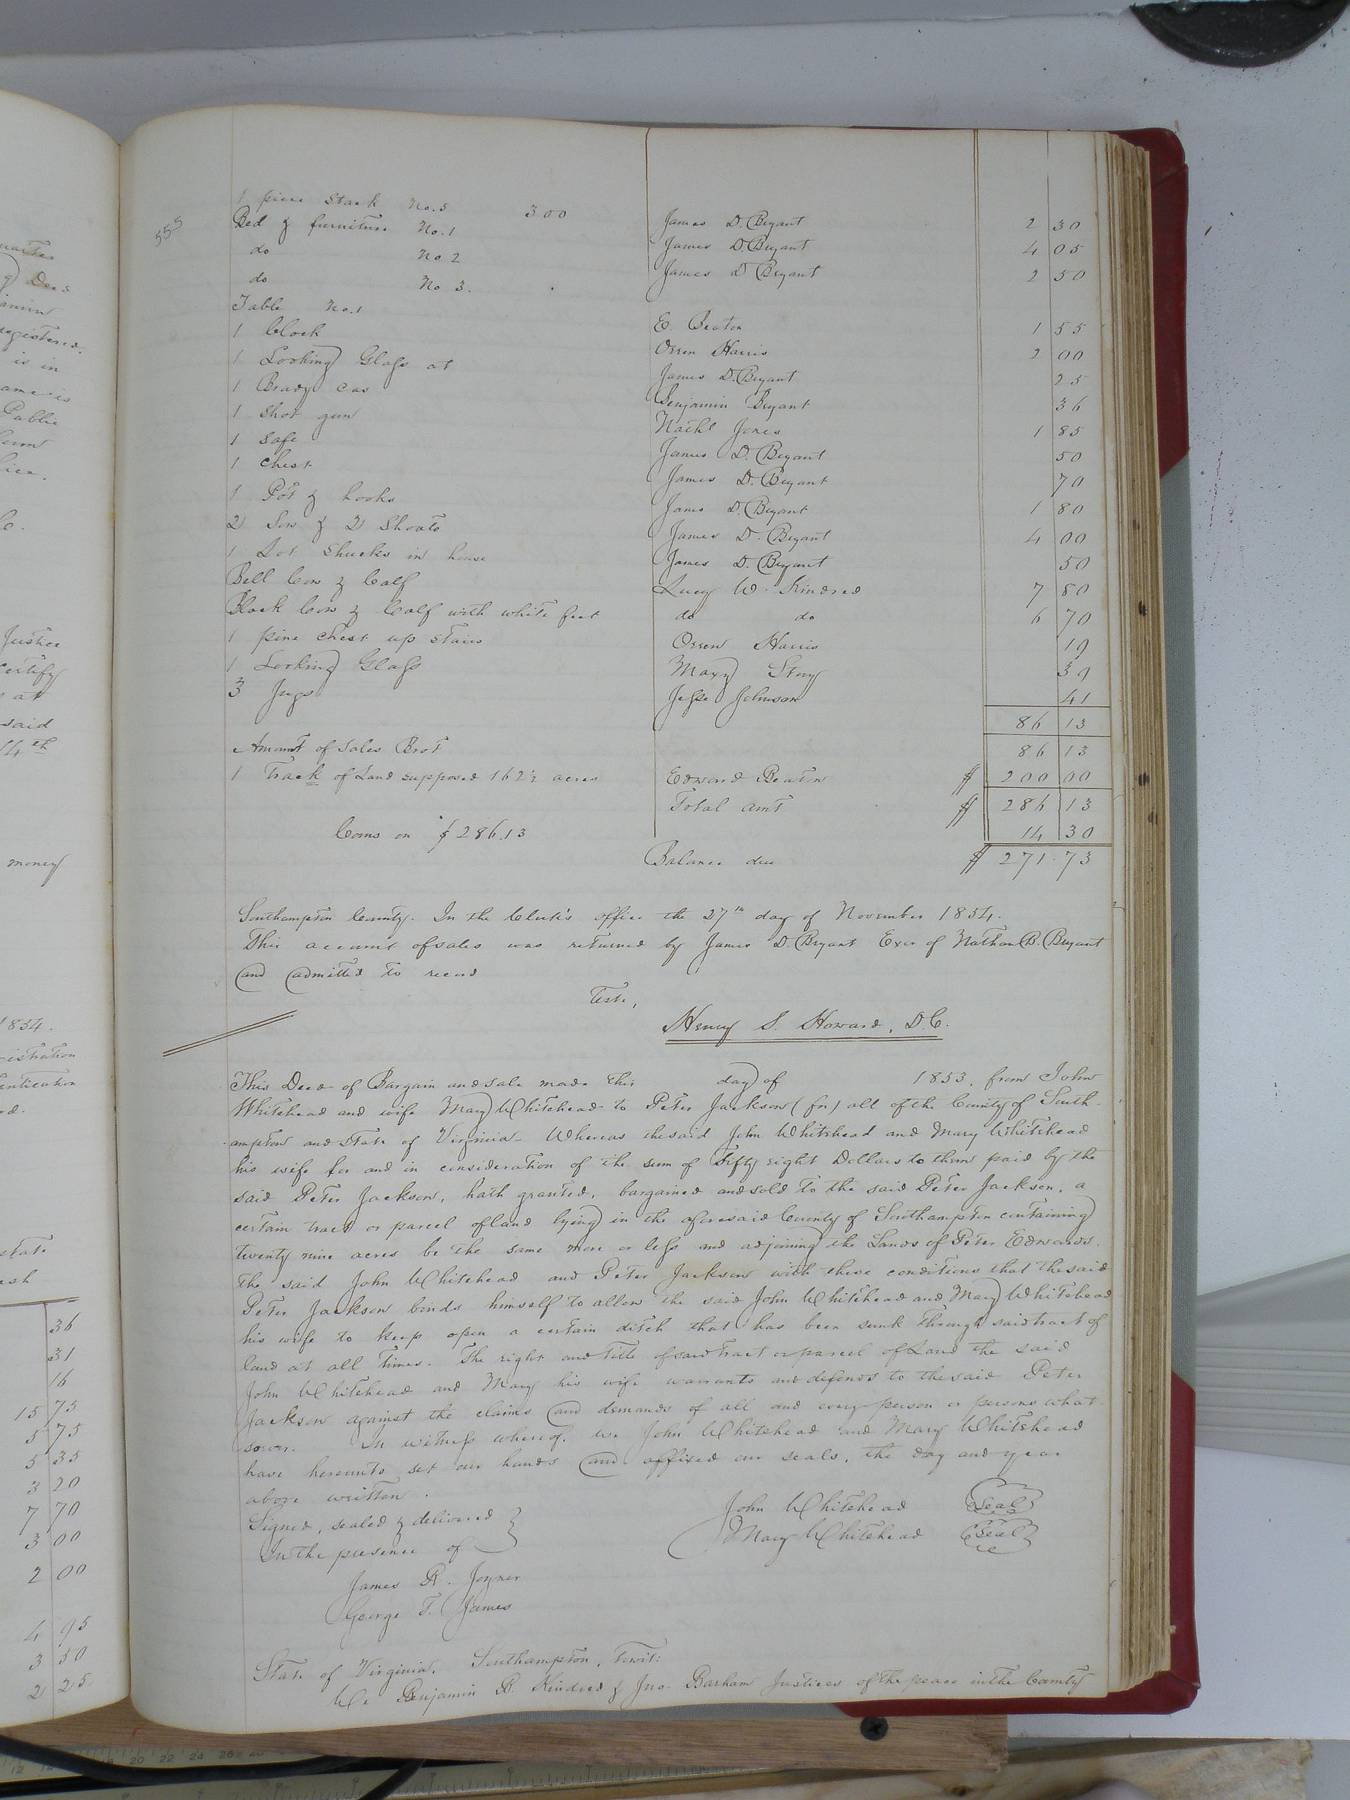 555
1 piece Stack No. 5 300
Bed & furniture No. 1 James D. Bryant 2 30
do No 2 James D Bryant 4 05
do No 3. James D Bryant 2 50
Table No. 1
1 Clock E. Beaton 1 55
1 Looking Glass at Orren Harris 2 00
1 Brandy Cas James D. Bryant 25
1 Shot gun Benjamin Bryant 36
1 Safe Nathl Jones 1 85
1 Chest James D. Bryant 50
1 Pot & hooks James D. Bryant 70
2 Sow & 2 Shoats James D. Bryant 1 80
1 Lot Shucks in house James D. Bryant 4 00
Bell Cow & Calf James D. Bryant 50
Black Cow & Calf with white feet Lucy W. Kindred 7 80
1 pine Chest up Stairs do do 6 70
1 Looking Glass Orren Harris 19
3 Jugs Mary Story 39
Jesse Johnson 41
86 13
Amount of Sales Brot 86 13
1 Track of Land supposed 162½ acres Edward Beaton $ 200 00
Total amt $ 286 13
Coms on $286.13 14 30
Balance due $ 271.73
Southampton County. In the Clerk's office the 27th day of November 1854.
This account of sales was returned by James D. Bryant Exor of Nathan B. Bryant
and admitted to record
Teste,
Henry S. Howard, D.C.
This Deed of Bargain and sale made this day of 1853, from John
Whitehead and wife Mary Whitehead to Peter Jackson (fn) all of the County of South-
ampton and State of Virginia. Whereas the said John Whitehead and Mary Whitehead
his wife for and in consideration of the sum of Fifty eight Dollars to them paid by the
said Peter Jackson, hath granted, bargained and sold to the said Peter Jackson, a
certain tract or parcel of land lying in the aforesaid County of Southampton containing
twenty nine acres be the same more or less and adjoining the Lands of Peter Edwards.
the said John Whitehead and Peter Jackson with these conditions that the said
Peter Jackson binds himself to allow the said John Whitehead and Mary Whitehead
his wife to keep open a certain ditch that has been sunk through said tract of
land at all times. The right and title of said tract or parcel of Land the said
John Whitehead and Mary his wife warrants and defends to the said Peter
Jackson against the claims and demands of all and every person or persons what-
soever. In witness whereof, we John Whitehead and Mary Whitehead
have hereunto set our hands and affixed our seals, the day and year
above written.
Signed, sealed & delivered John Whitehead Seal
in the presence of Mary Whitehead Seal
James R. Joyner
George T. James
State of Virginia. Southampton, towit:
We Benjamin B. Kindred & Jno. Barham Justices of the peace in the County